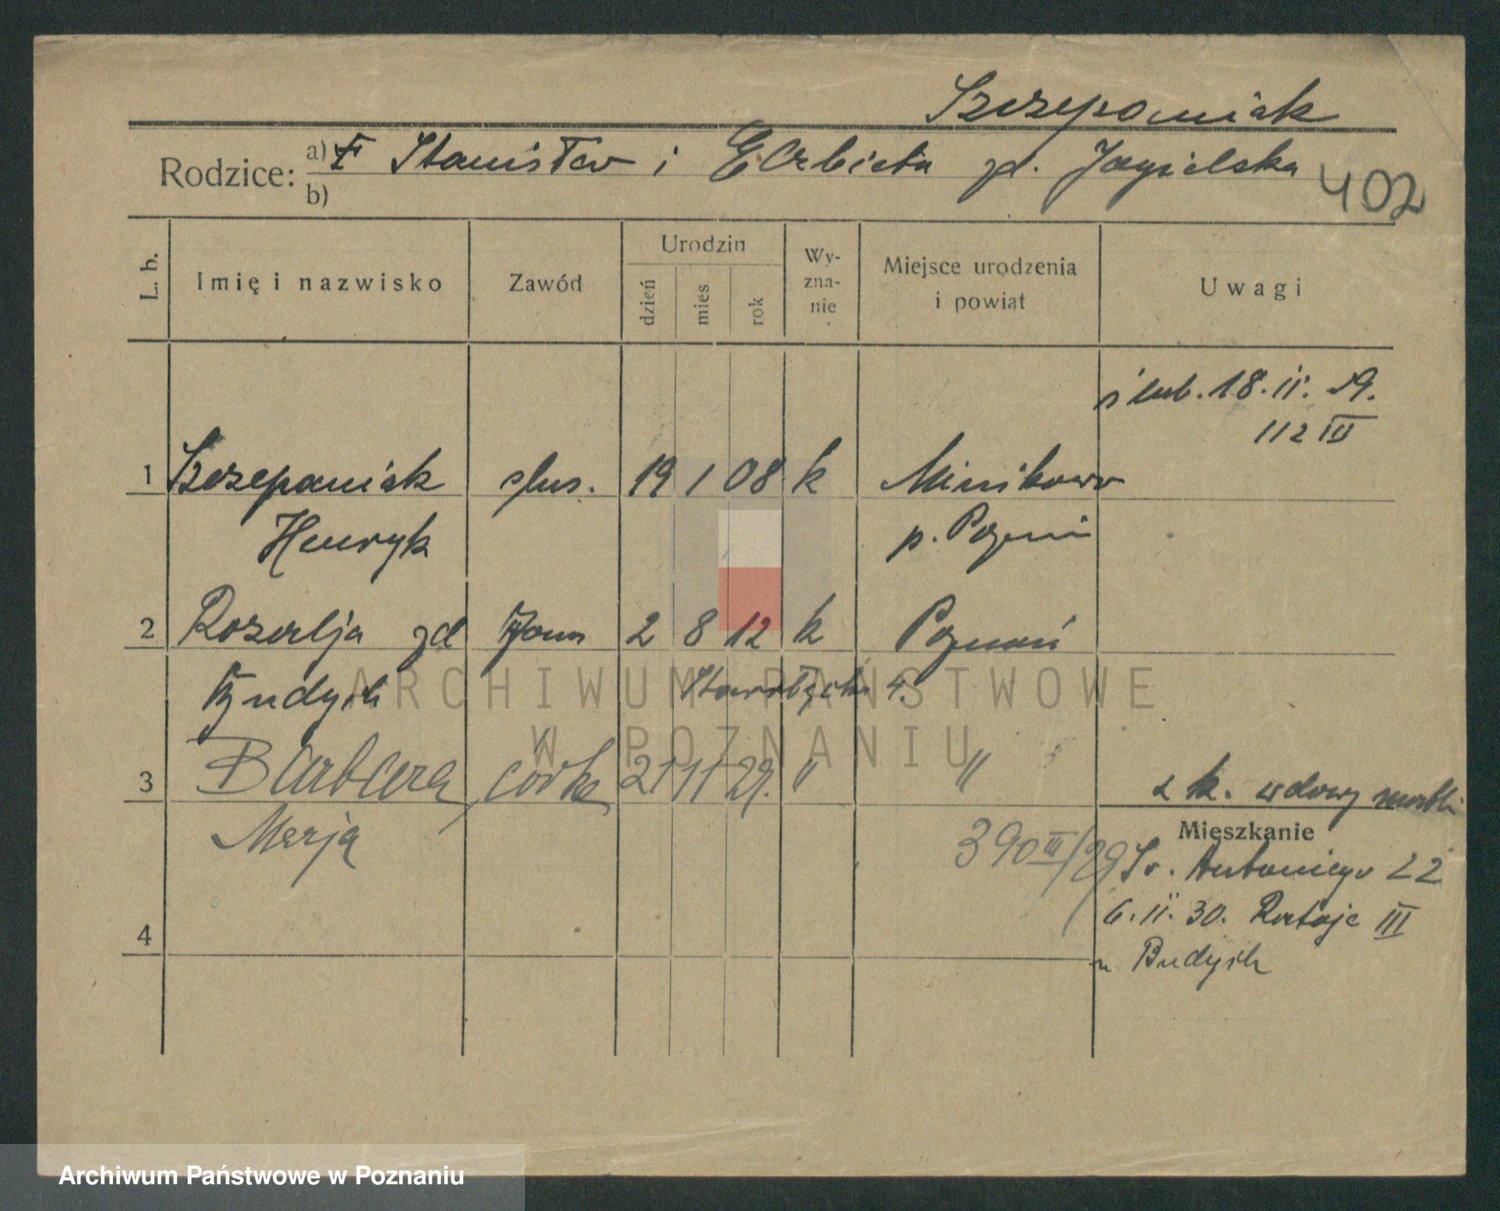 Szczepaniak
Rodzice: a) † Stanisław i Elżbieta zd. Jagielska
b)
402
L. b.
Imię i nazwisko
Zawód
Urodzin
dzień
mies
rok
Wy-
zna-
nie
Miejsce urodzenia
i powiat
Uwagi
ślub. 18. 11. 29.
112 III
1 Szczepaniak ślus. 19 1 08 k Minikowo
Henryk p. Poznań
2 Rozalja zd 2 8 12 k Poznań
Budych Starołęcka 4.
3 Barbara córka 21 11 29. " "
Marja
z k. wdowy matki
Mieszkanie
390 III/29
Św. Antoniego 22
6. 11. 30. Rataje III
u Budych
4
ARCHIWUM PAŃSTWOWE
W POZNANIU
Archiwum Państwowe w Poznaniu